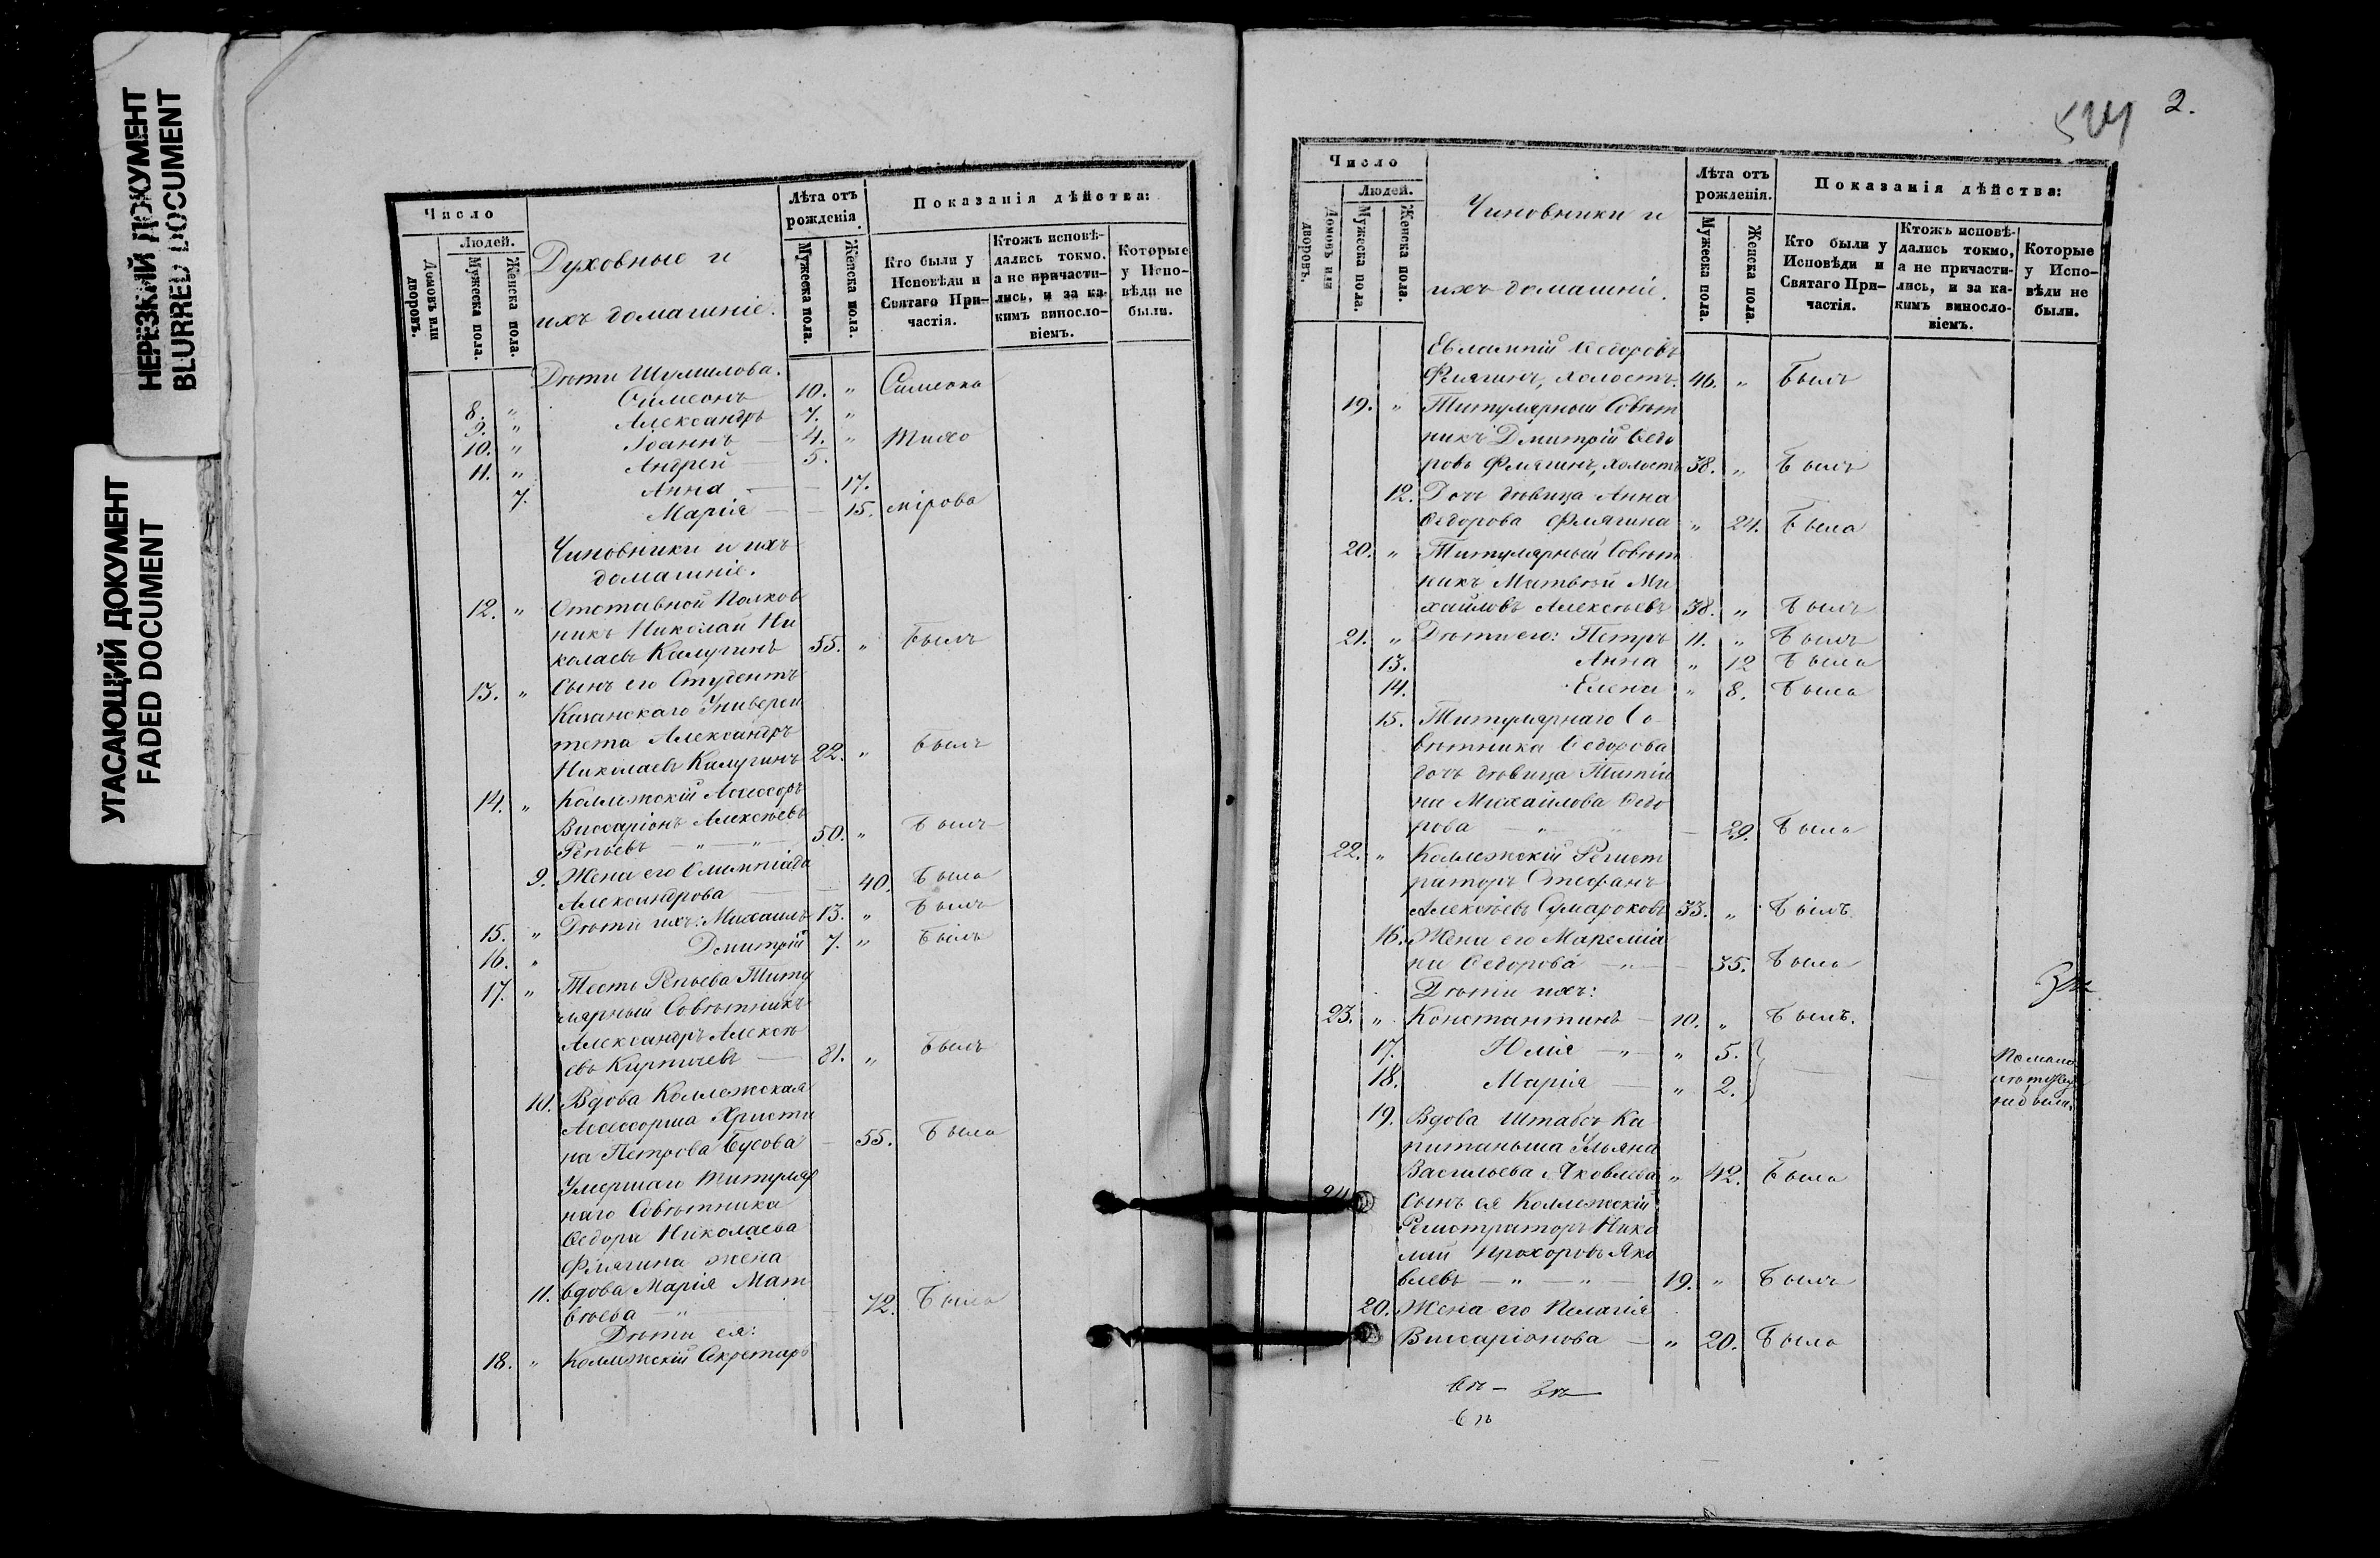 НЕРЕЗКИЙ ДОКУМЕНТ
BLURRED DOCUMENT
УГАСАЮЩИЙ ДОКУМЕНТ
FADED DOCUMENT
Число
Людей.
Домовъ или дворовъ.
Мужеска пола.
Женска пола.
Духовные и
ихъ домашніе.
Лѣта отъ
рожденія.
Мужеска пола.
Женска пола.
Показанія дѣйства:
Кто были у
Исповѣди и
Святаго При-
частія.
Ктожъ исповѣ-
дались токмо,
а не причасти-
лись, и за ка-
кимъ винословіемъ.
Которые
у Испо-
вѣди не
были.
Дѣти Шумилова.
8. " Симеонъ 10. "
9. " Александръ 7. "
10. " Іоаннъ — 4. "
11. " Андрей — 5.
7. Анна — — 17.
Марія — — 15.
Чиновники и ихъ
домашніе.
12. " Отставной Полков
никъ Николай Ни
колаевъ Калугинъ 55. " Былъ
13. " Сынъ его Студентъ
Казанскаго Универси
тета Александръ
Николаевъ Калугинъ 22. " былъ
14. " Коллежскій Ассесоръ
Виссаріонъ Алексѣевъ
Репьевъ — " — " 50. " Былъ
9. Жена его Олимпіада
Александрова — 40. Была
15. " Дѣти ихъ: Михаилъ 13. " Былъ
16. " Дмитрій 7. " Былъ
17. " Тесть Репьева Титу
лярный Совѣтникъ
Александръ Алексѣ
евъ Кирпичевъ — 81. " Былъ
10. Вдова Коллежская
Ассесорша Христи
на Петрова Бусова — 55. Была
Умершаго Титуляр
наго Совѣтника
Ѳедора Николаева
Флягина жена
11. вдова Марія Мат
вѣева — " — 72. Была
Дѣти ея:
18. " Коллежскій Секретарь
2.
Число
Людей.
Домовъ или дворовъ.
Мужеска пола.
Женска пола.
Чиновники и
ихъ домашніе.
Лѣта отъ
рожденія.
Мужеска пола.
Женска пола.
Показанія дѣйства:
Кто были у
Исповѣди и
Святаго При-
частія.
Ктожъ исповѣ-
дались токмо,
а не причасти-
лись, и за ка-
кимъ винословіемъ.
Которые
у Испо-
вѣди не
были.
Евлампій Ѳедоровъ
Флягинъ, холостъ. 46. " Былъ
19. " Титулярный Совѣт
никъ Дмитрій Ѳедо
ровъ Флягинъ, холостъ 38. " Былъ
12. Дочь дѣвица Анна
Ѳедорова Флягина " 24. Была
20. " Титулярный Совѣт
никъ Матвѣй Ми
хайловъ Алексѣевъ 38. " Былъ
21. " Дѣти его: Петръ 11. " Былъ
13. Анна " 12 Была
14. Елена " 8. Была
15. Титулярнаго Со
вѣтника Ѳедорова
дочь дѣвица
Михайлова Ѳедо
рова — " — 29. Была
22. " Коллежскій Регист
раторъ Стефанъ
Алексѣевъ Сумароковъ 33. " Былъ
16. Жена его Маркеліа
на Ѳедорова — " — 35. Была
Дѣти ихъ:
23. " Константинъ — 10. " Былъ.
17. Юлія — " " 5.
18. Марія — " 2.
19. Вдова Штабсъ Ка
питанша Ульяна
Васильева Яковлева " 42. Была
24. Сынъ ея Коллежскій
Регистраторъ Нико
лай Прохоровъ Яко
влевъ — " — " — 19. " Былъ
20. Жена его Пелагія
Виссаріонова — " 20. Была